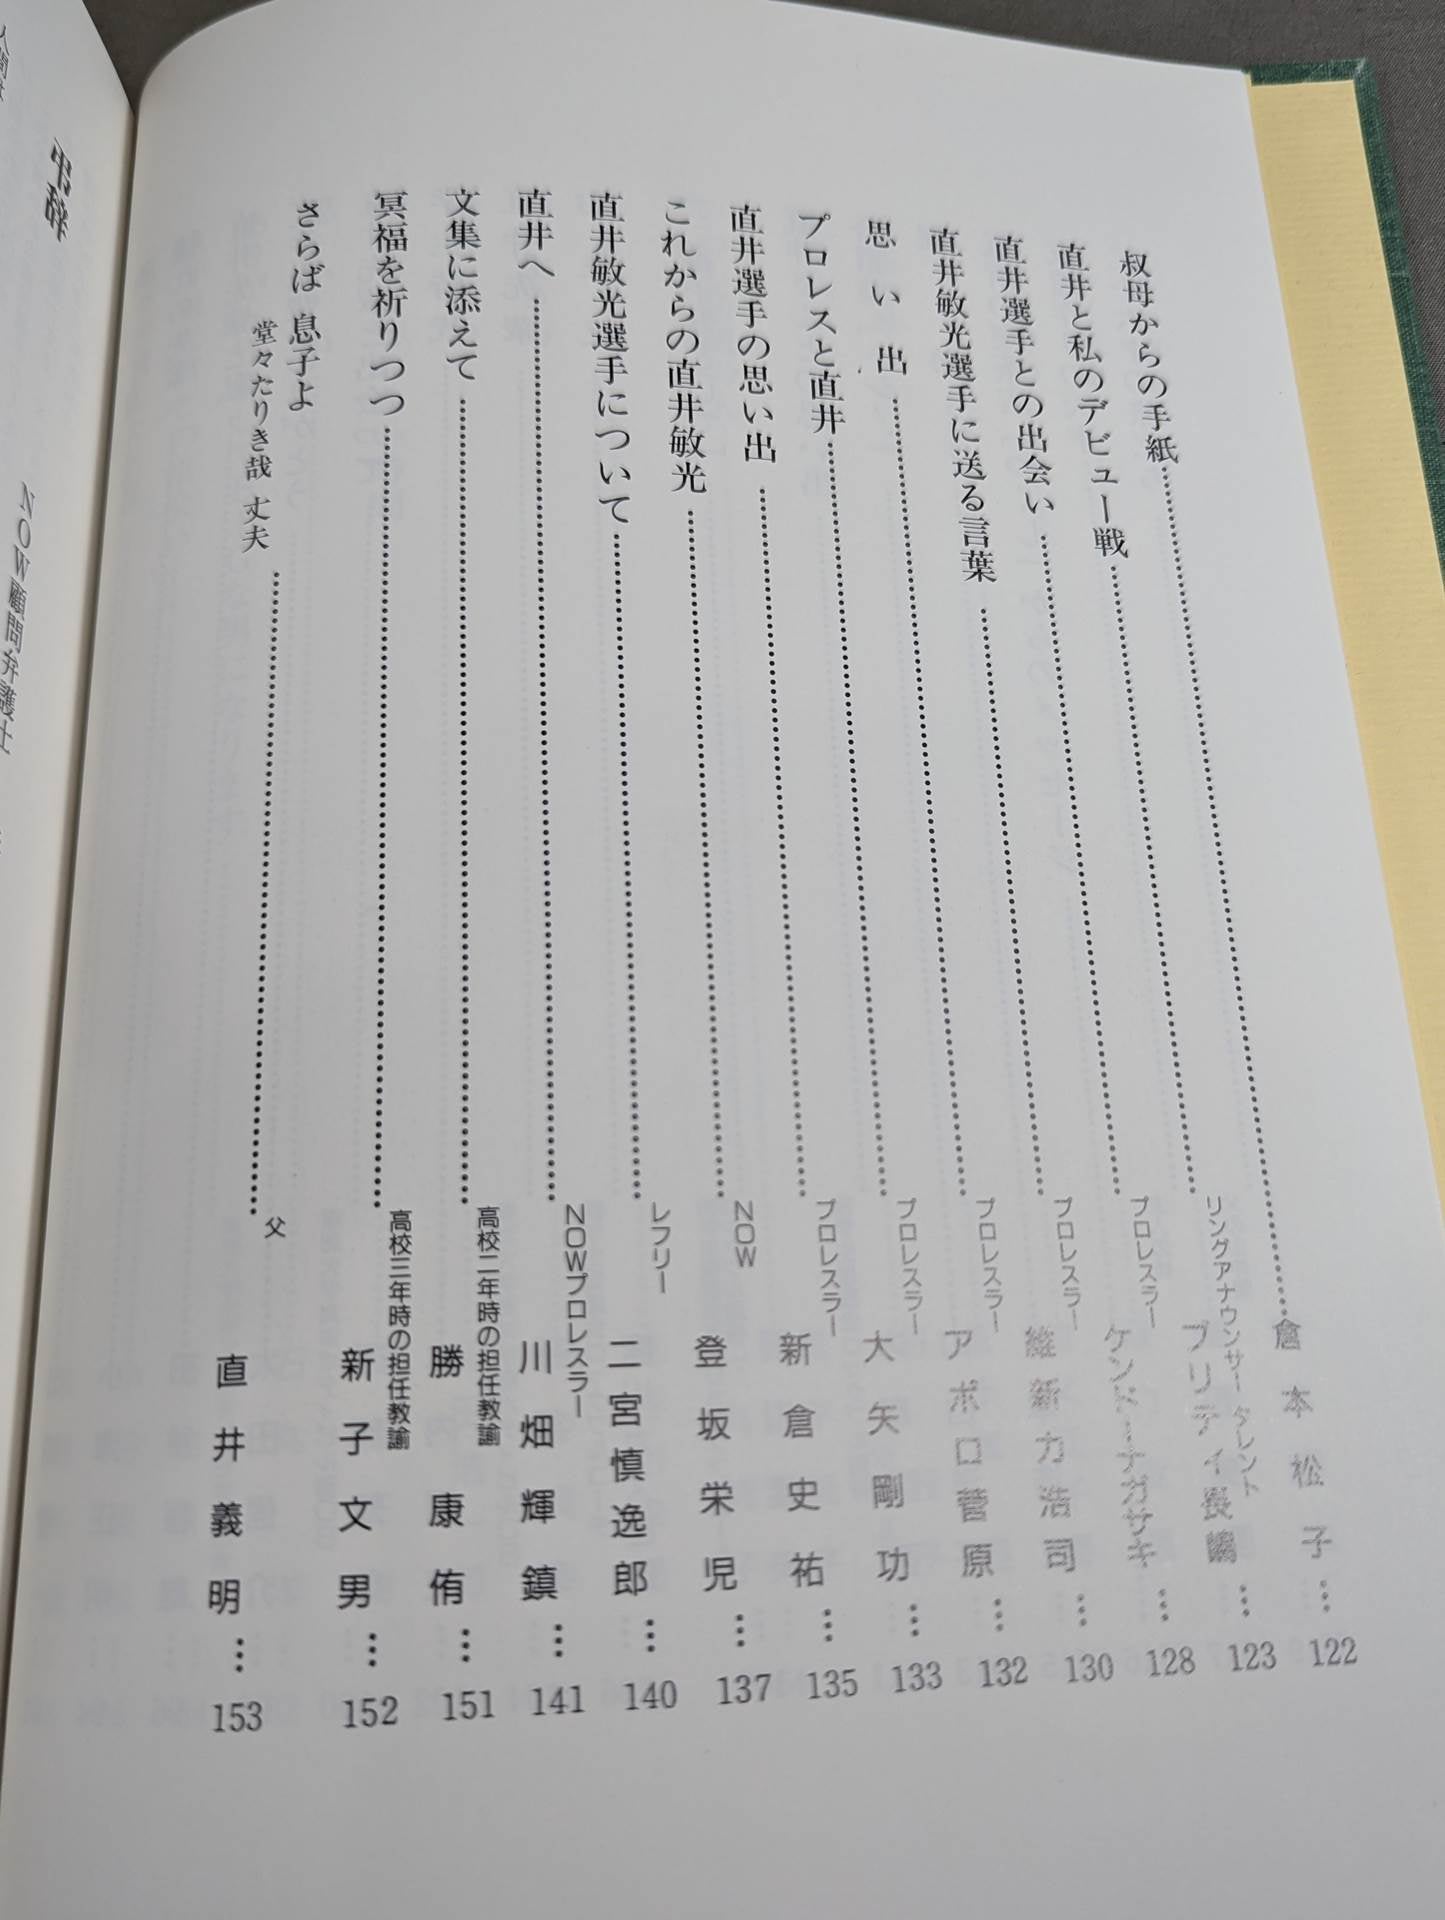 叔母からの手紙 倉本松子 … 122
直井と私のデビュー戦 リングアナウンサー タレント プリティ長嶋 … 123
直井選手との出会い プロレスラー ケンドーナガサキ … 128
直井敏光選手に送る言葉 プロレスラー 維新力浩司 … 130
思い出 プロレスラー アポロ菅原 … 132
プロレスと直井 プロレスラー 大矢剛功 … 133
直井選手の思い出 プロレスラー 新倉史祐 … 135
これからの直井敏光 NOW 登坂栄児 … 137
直井敏光選手について レフリー 二宮慎逸郎 … 140
直井へ NOWプロレスラー 川畑輝鎮 … 141
文集に添えて 高校二年時の担任教諭 勝康侑 … 151
冥福を祈りつつ 高校三年時の担任教諭 新子文男 … 152
さらば 息子よ
堂々たりき哉 丈夫 父 直井義明 … 153
弔辞
NOW顧問弁護士
人間は